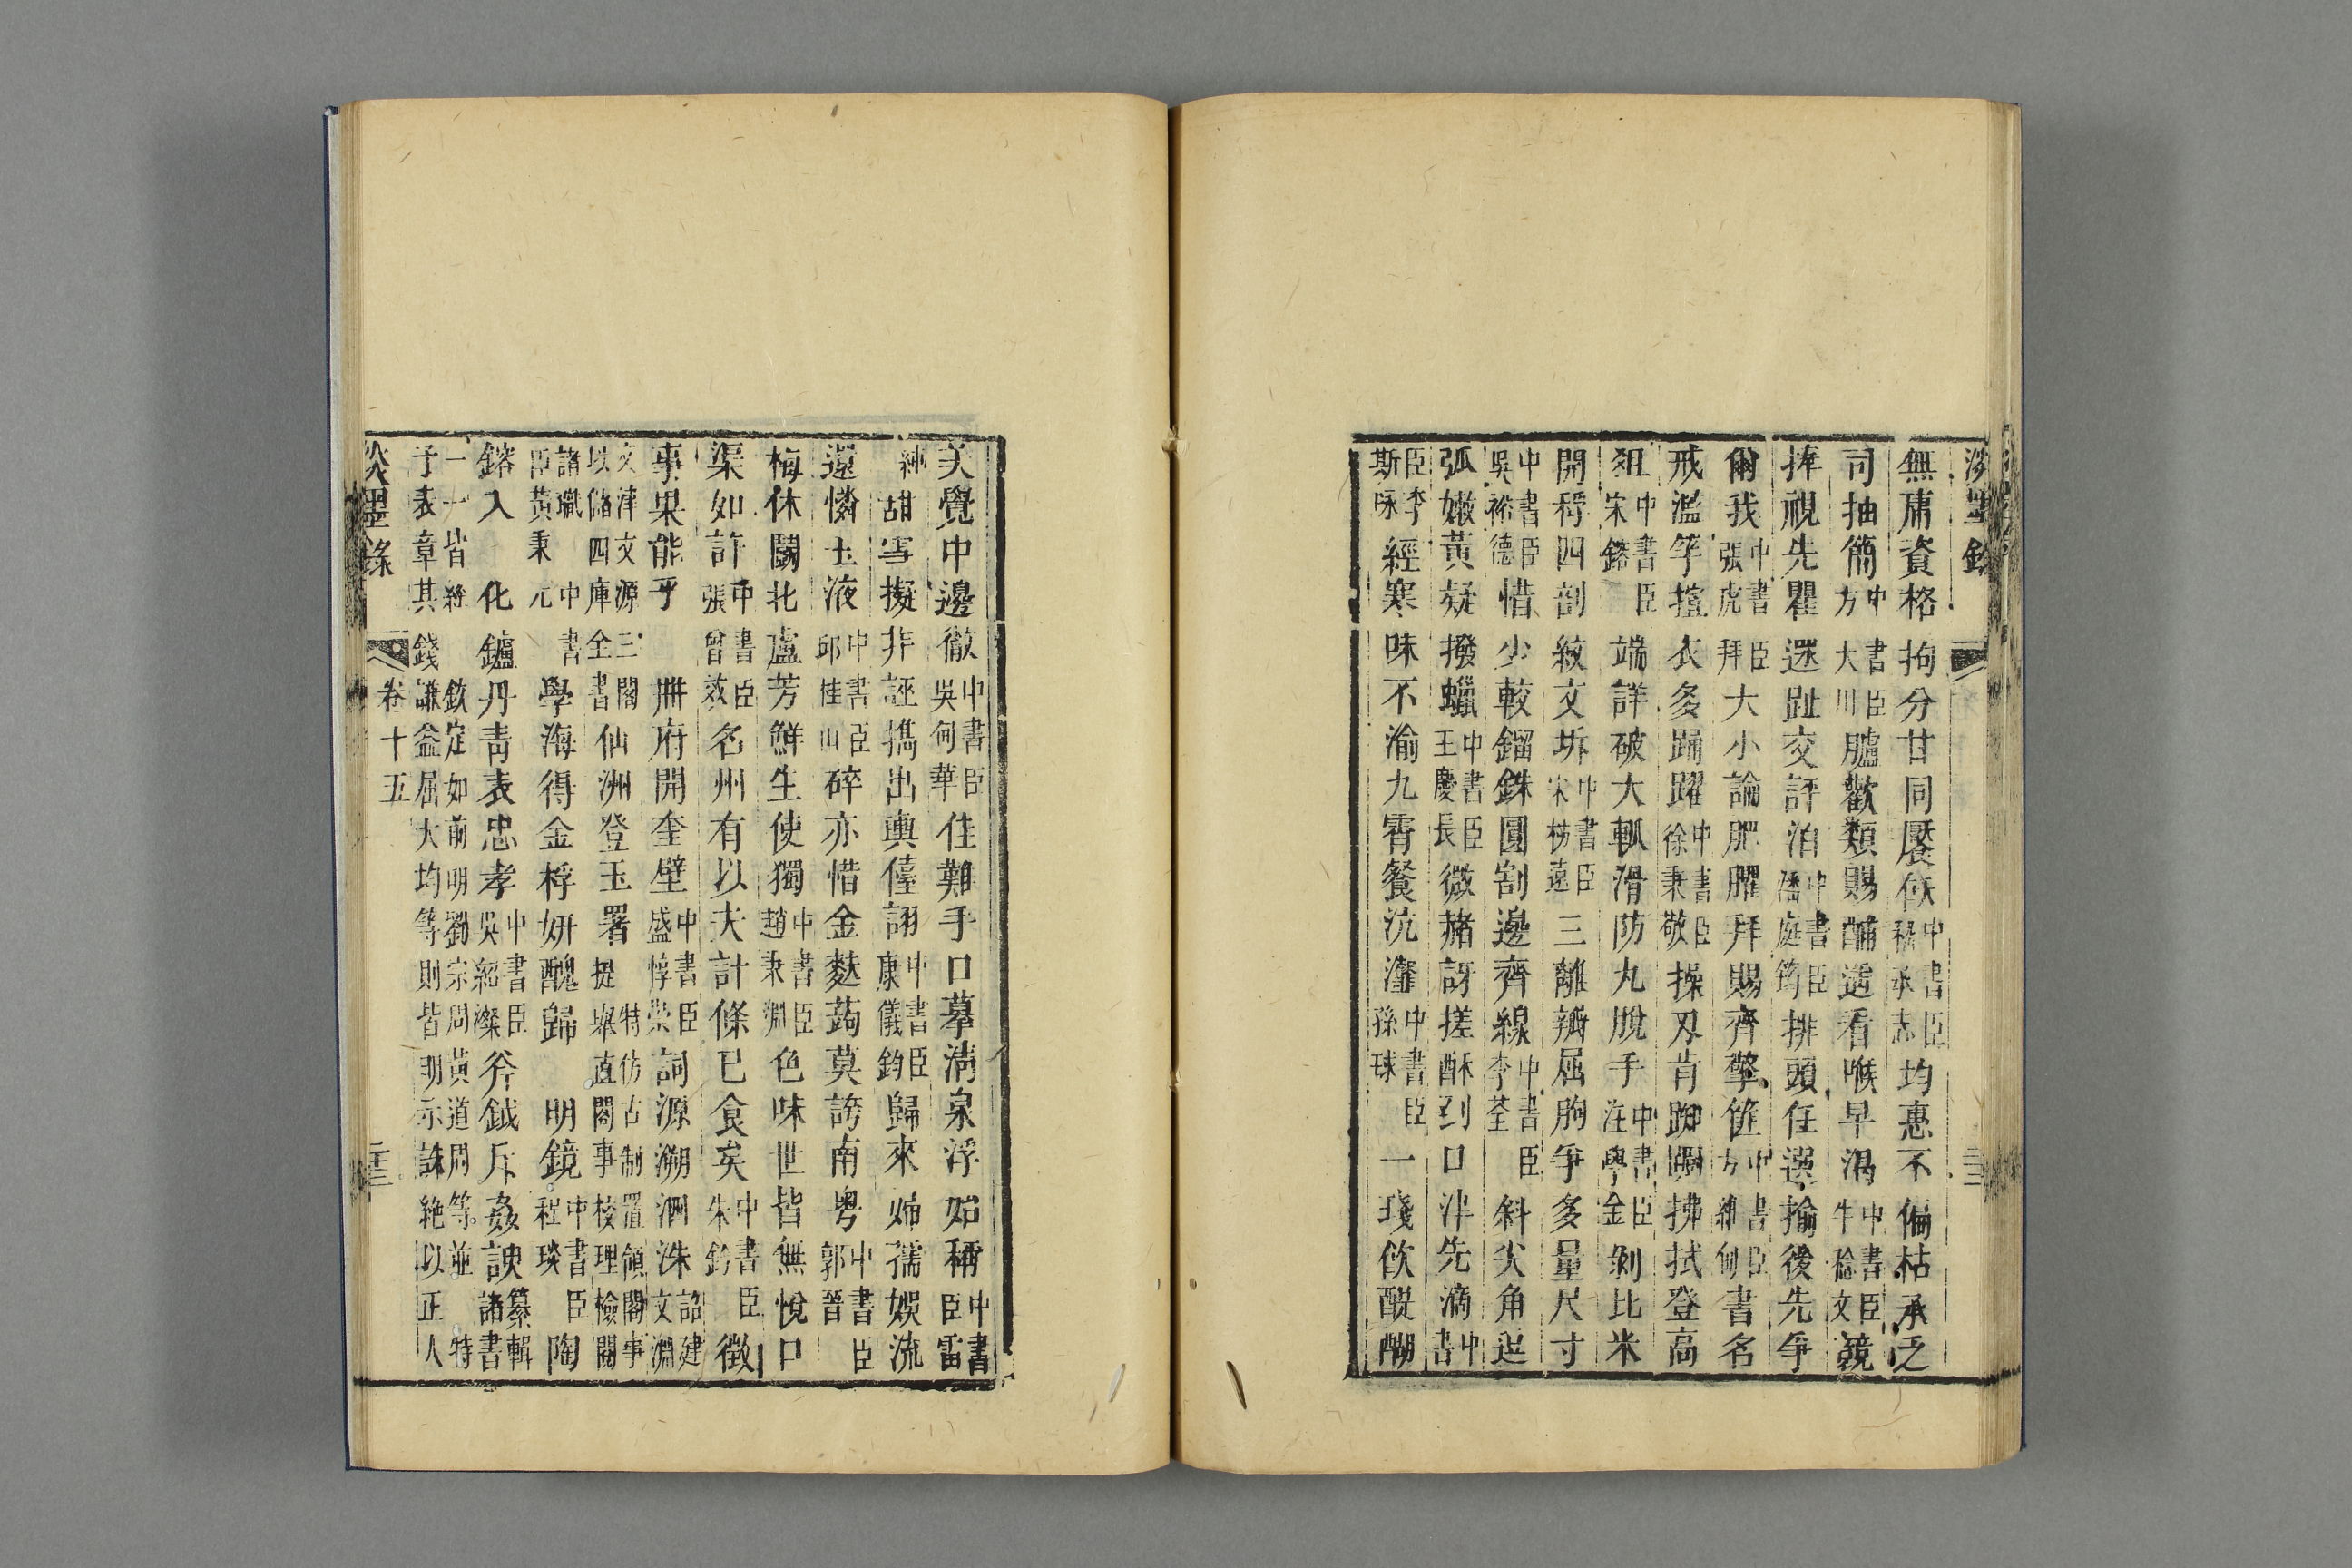 淡墨錄
無庸資格拘分甘同饜飫中書臣承志均惠不偏枯承乏
司抽簡中書臣方大川臚歡類賜酺適看喉早渴中書臣牛稔文競
捧視先瞿迷趾交評泊中書臣潘庭筠排頭任選掄後先爭
爾我中書臣張虎拜大小論肥臞拜賜齊擎篚中書臣方維甸書名
戒濫竽揎衣多踴躍中書臣徐秉敬操刃肯踟躕拂拭登高
俎中書臣宋鎔端詳破大觚滑防丸脫手中書臣汪學金剝比米
開稃四剖紋文坼中書臣宋枋遠三離瓣屈朐爭多量尺寸
中書臣吳裕德惜少較錙銖圓割邊齊線中書臣李荃斜尖角逗
弧嫩黃疑撥蠟中書臣王慶長微赭訝搓酥到口津先滴中書
臣李斯咏經寒味不渝九霄餐沆瀣中書臣孫球一琖飲醍醐
美覺中邊徹中書臣吳甸華佳難手口摹淸泉浮始稱中書臣雷
純甜雪擬非誣擕出輿儓詡中書臣康儀鈞歸來姊孺娛流
還憐玉液中書臣邱桂山碎亦惜金麩蒟莫誇南粵中書臣郭晉
梅休鬭北盧芳鮮生使獨中書臣趙秉淵色味世皆無悅口
渠如許中書臣張曾效名州有以夫計條已食矣中書臣朱鈐徵
事果能乎 冊府開奎壁中書臣盛惇崇詞源溯泗洙詔建文淵
文津文源三閣以儲四庫全書仙洲登玉署特仿古制置領閣事提舉直閣事校理檢閱
諸職中書臣黃秉元學海得金桴姸醜歸 明鏡中書臣程琰陶
鎔入 化鑪丹靑表忠孝中書臣吳紹燦斧鉞斥姦諛纂輯諸書
一一皆經 欽定如前明劉宗周黃道周等並 特予表章其錢謙益屈大均等則皆明示誅絶以正人
淡墨錄 卷十五 二十三